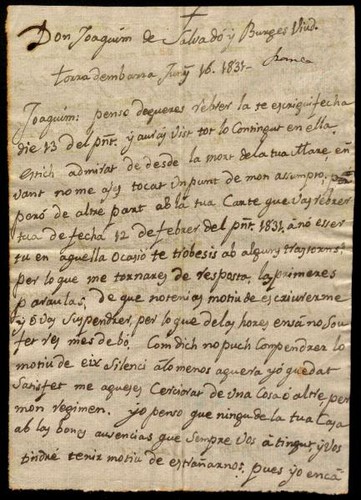 Don Joaquim de Salvadó y Burges Viud.
Torra dembarra Juny 16. 1831 = franca
Joaquim: penso degueres rebrer la te escriguí fecha
die 13 del pnt. y auras vist tot lo Contingut en ella
Estich admirat de desde la mort de la tua Mare, en
sant no me ajas tocat un punt de mon assumpto,
peró de altre part ab la tua Carte que vas rebrer
tua de fecha 12 de febrer del pnt. 1831, á no esser
tu en aquella ocasió te trobesis ab alguns trastorns
per lo que me tornares de resposta, las primeres
paraulas, de que notenias motiu de escriurerme
y o vas suspendrer, per lo que de las hores ensá no sou
fet res mes de bó. Com dich no puch Compendrer lo
motiu de eix silenci álomenos aguera yo quedat
satisfet me agueses Cerciorat de una Cosa ó altre per
mon regimen. yo penso que ningu de la tua Casa
ab las bones ausencias que sempre vos á tingut y vos
tindré tenir motiu de estrañarnos, pues yo encá